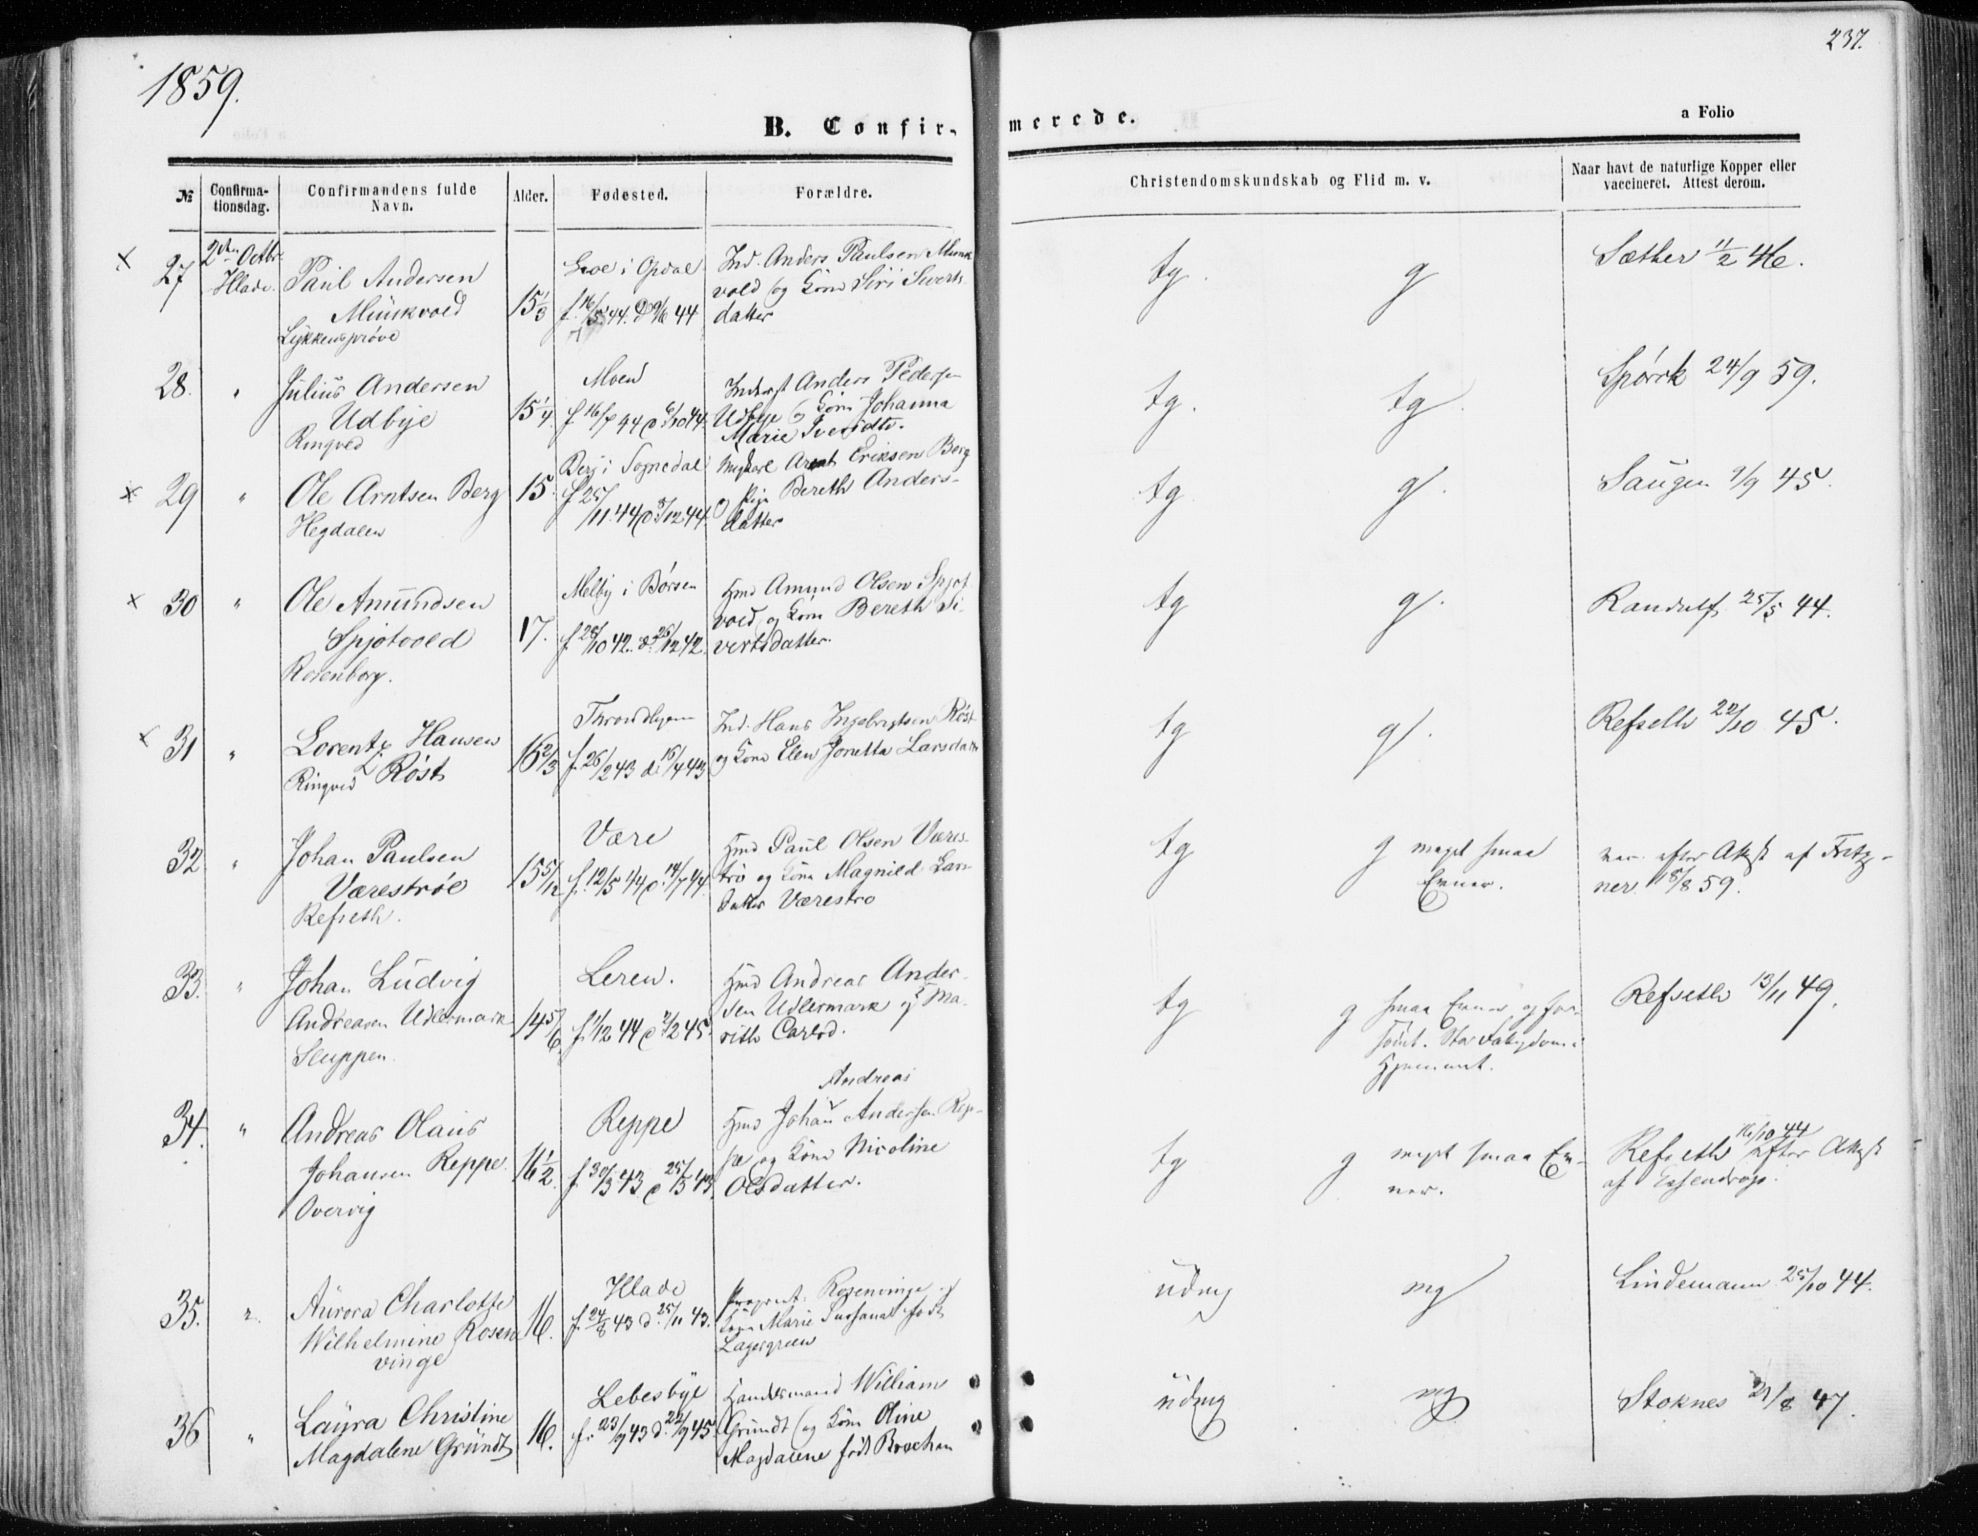 1859.
237.
B. Confir-
merede.
a Folio
№
Confirma-
tionsdag.
Confirmandens fulde
Navn.
Alder.
Fødested.
Forældre.
Christendomskundskab og Flid m. v.
Naar havt de naturlige Kopper eller
vaccineret. Attest derom.
x 27 2den Octbr.
Hlade.
Paul Andersen
Munkvold
Lykkensprøve
15 1/3
i Opdal
f. 16/5 44. 44
Ind. Anders Paulsen Munk
vold og Kone Siri Siverts
datter
tg. g
Sæther 11/2 46.
28. " Julius Andersen
Udbye
Ringved
15 1/4
Moen
f 16/7 44 d 6/10 44.
Inderst Anders Pedersen
Udbye og Kone Johanna
Marie Iversdtr.
tg. tg.
Spørck 24/9 59.
x 29 " Ole Arntsen Berg
Hegdalen
15
Berg i Sognedal
f 25/11 44 d 8/12 44.
Ungkarl Arnt Eriksen Berg
og Pige Bereth Anders-
datter
tg g.
Saugen 9/9 45.
x 30 " Ole Amundsen
Spjotvold
Rosenborg.
17.
Melby i Børsen
f. 28/10 42. d. 26/12 42.
Hmd Amund Olsen Spjot
vold og Kone Bereth Si
vertsdatter.
tg g.
Randulf 25/5 44.
x 31 " Lorentz Hansen
Røst
Ringved
16 2/3
Throndhjem
f. 26/2 43 d. 15/4 43
Ind. Hans Ingebrigtsen Røst
og Kone Elen Jonetta Larsdatter
tg g.
Refseth 22/10 45.
32 " Johan Paulsen
Værestrøe
Refseth.
15 5/12
Være
f. 12/5 44 d. 14/7 44.
Hmd Paul Olsen Væres-
trø og Kone Magnild Lars
datter Værestrø
tg g meget smaa
Evner.
vac. efter Attest af Fritz-
ner 18/8 59.
33. " Johan Ludvig
Andreasen Udlermark
Sluppen.
14 5/6
Leren.
f. 1/12 44 d 2/2 45.
Hmd Andreas Ander-
sen Udlermark og Ma-
rith Carlsd.
tg g smaa Evner og for-
sømt. Stor Fattigdom i
Hjemmet.
Refseth 13/11 49.
34. " Andreas Olaus
Johansen Reppe.
Overvig
16 1/2.
Reppe
f. 30/3 43. d 25/5 43.
Andreas
Hmd Johan Andersen Rep-
pe og Kone Nicoline
Olsdatter.
tg g meget smaa Ev-
ner.
16/10 44
Refseth efter Attest
af Essendrop.
35. " Aurora Charlotte
Wilhelmine Rosen
vinge
16.
Hlade
f. 24/8 43 d. 25/11 43.
Rosenvinge og
Kone Marie Susanne født
Lagergreen
udmg mg
Lindemann 25/10 44.
36 " Laura Christine
Magdalene Grundt
16.
Lebesbye
f. 23/9 43 d. 22/9 45
Handelsmand William
Grundt og Kone Oline
Magdalene født Buschan
udmg mg
Stoknes 21/8 47.